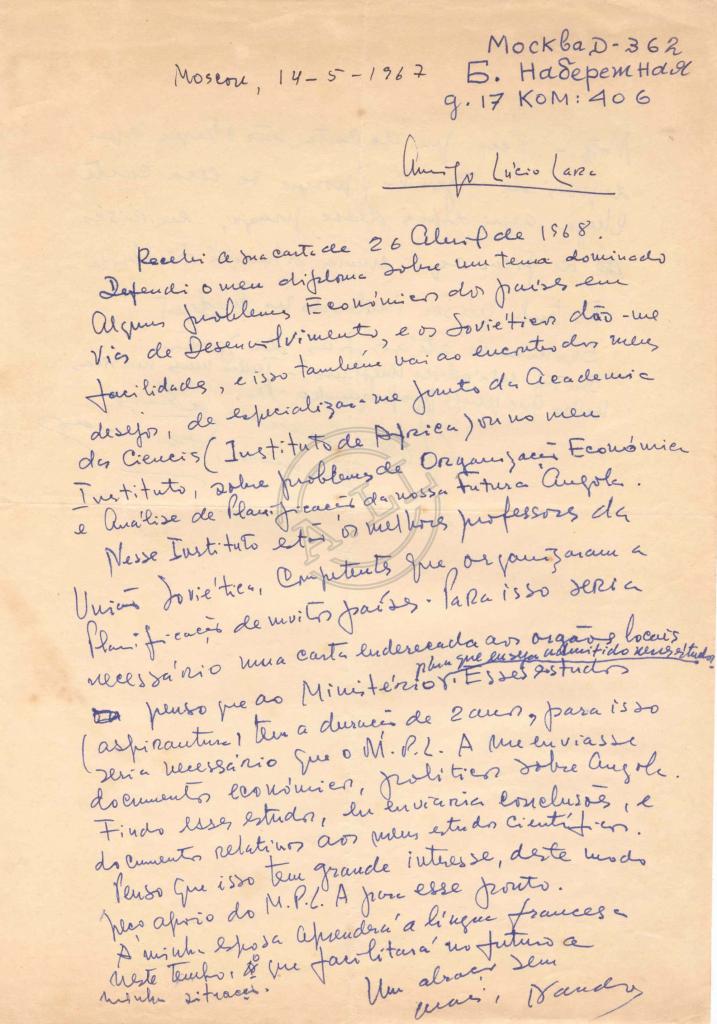 Москва Д-362
Б. Набережная
д. 17 КОМ: 406
Moscou, 14-5-1967
Amigo Lúcio Lara
Recebi a sua carta de 26 Abril de 1968.
Defendi o meu diploma sobre um tema dominado
Alguns problemas Económicos dos países em
Vias de Desenvolvimento, e os Soviéticos dão-me
facilidades, e isso também vai ao encontro dos meus
desejos, de especializar-me junto da Academia
das Ciencis (Instituto de Africa) ou no meu
Instituto, sobre problemas de Organização Económica
e Análise de Planificação da nossa futura Angola.
Nesse Instituto estão os melhores professores da
União Soviética, Competentes que organizaram a
Planificação de muitos países. Para isso seria
necessário uma carta enderecada aos orgãos locais
para que eu seja admitido nesses estudos
penso que ao Ministério. Esses estudos
(aspirantura) tem a duração de 2 anos, para isso
seria necessário que o M.P.L.A me enviasse
documentos económicos, políticos sobre Angola.
Findo esses estudos, eu enviaria conclusões, e
documentos relativos aos meus estudos científicos.
Penso que isso tem grande interesse, deste modo
peço apoio do M.P.L.A para esse ponto.
A minha esposa aprenderá a língua francesa
neste tempo, o que facilitará no futuro a
minha situação.
Um abraço sem
mais,